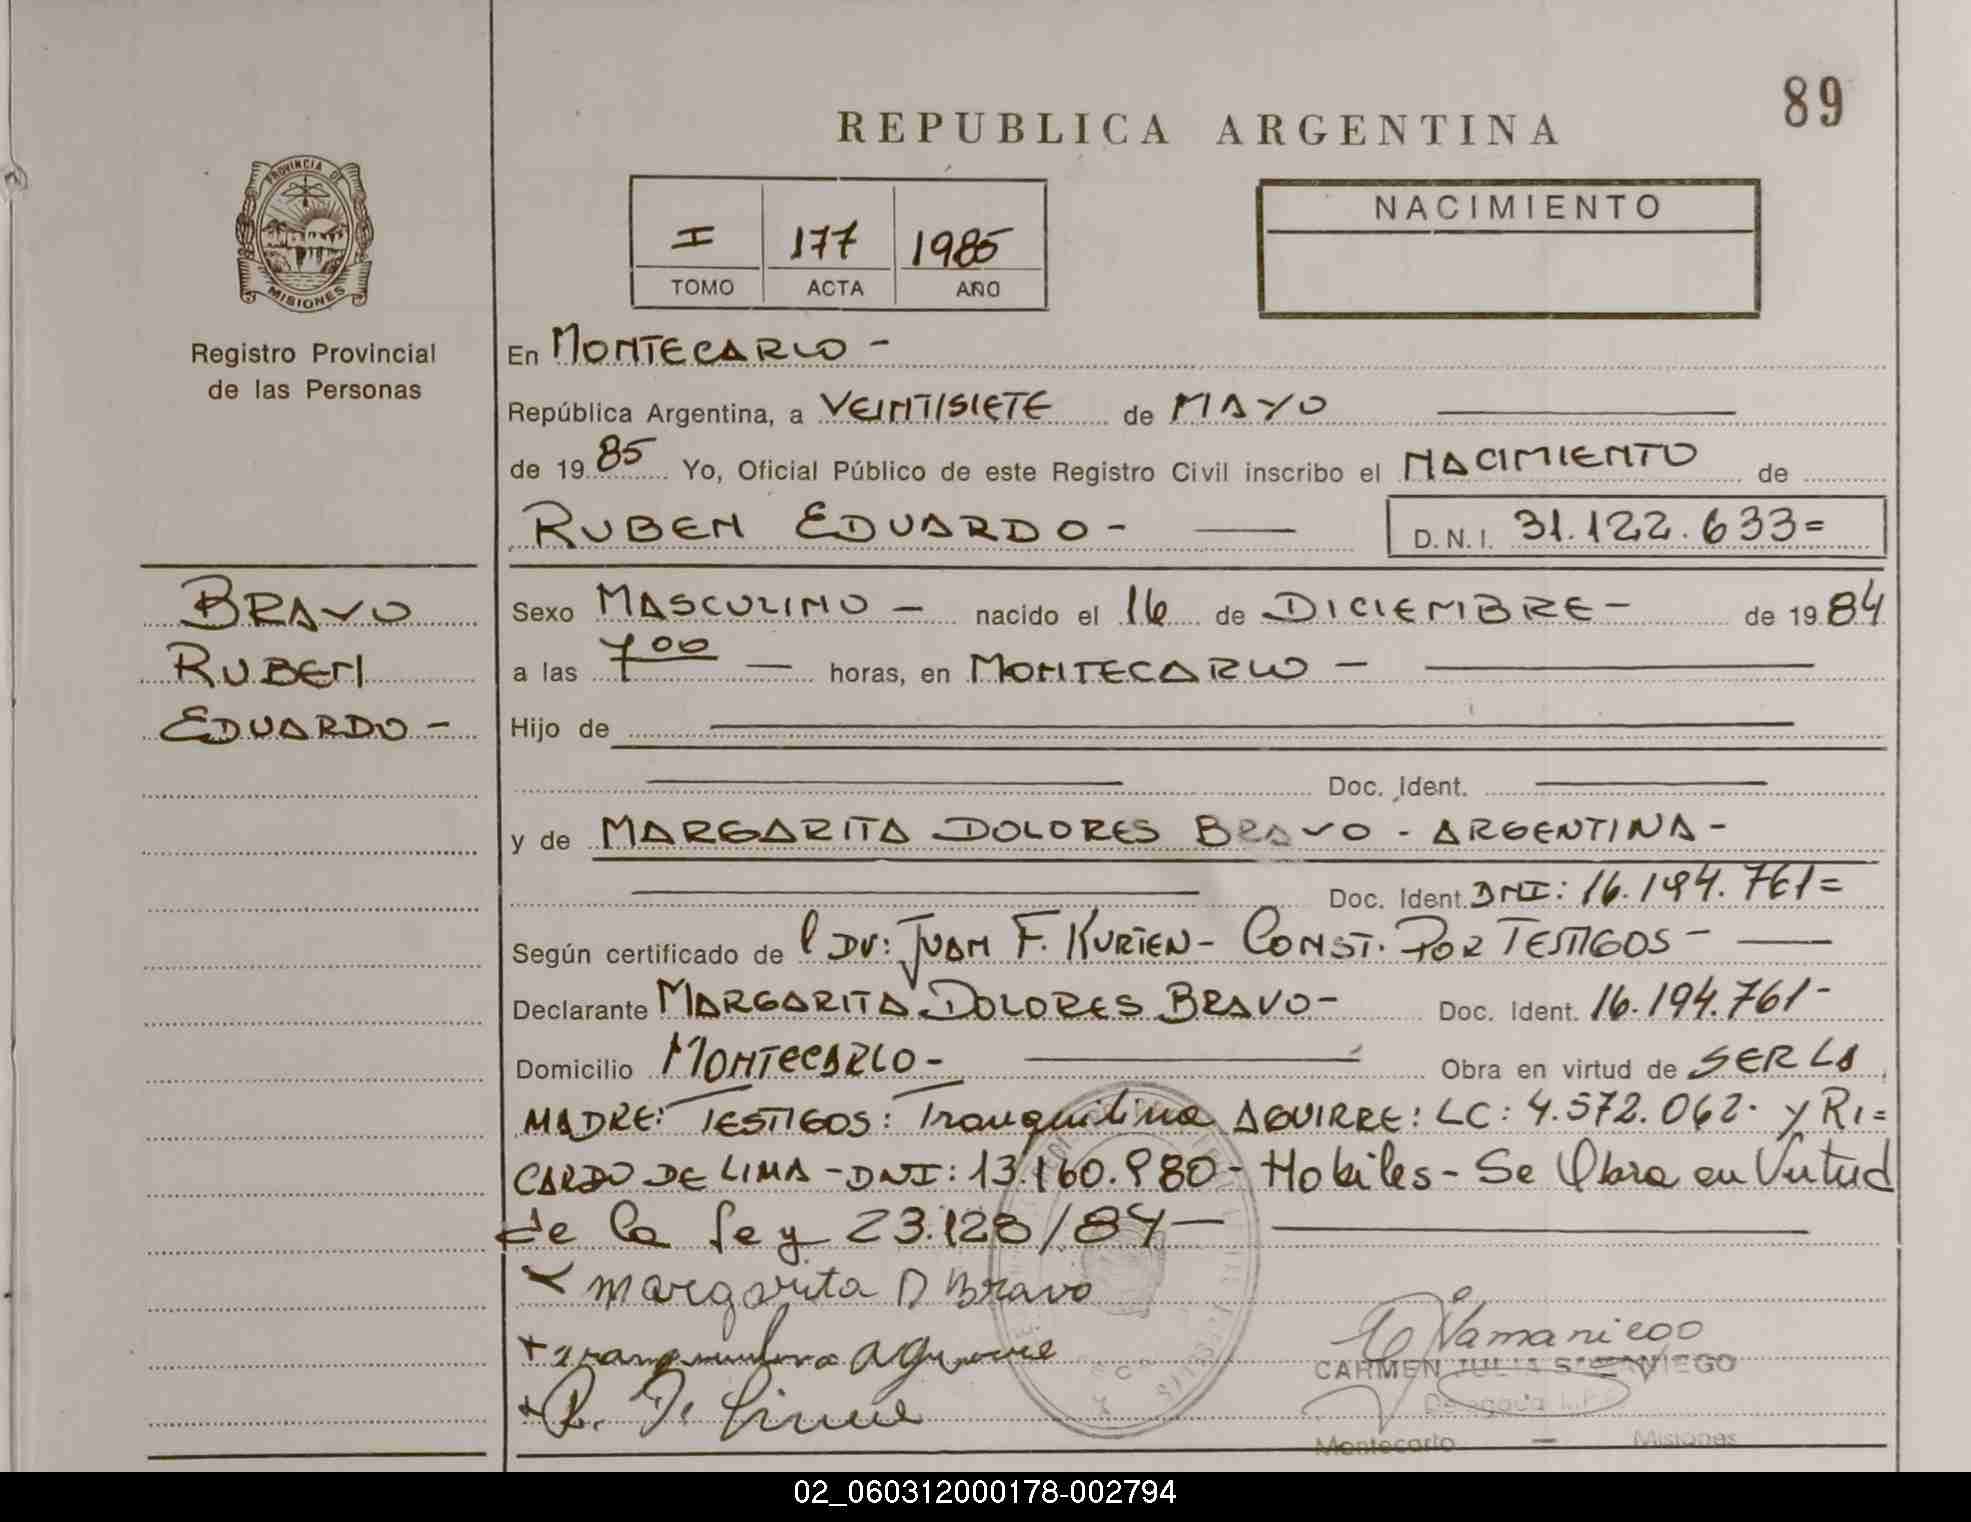 89
REPUBLICA ARGENTINA
PROVINCIA DE
MISIONES
Registro Provincial
de las Personas
I 177 1985
TOMO ACTA AÑO
NACIMIENTO
En MONTECARLO -
República Argentina, a VEINTISIETE de MAYO
de 19 85 Yo, Oficial Público de este Registro Civil inscribo el NACIMIENTO de
RUBEN EDUARDO - D.N.I. 31.122.633=
BRAVO
RUBEN
EDUARDO -
Sexo MASCULINO - nacido el 16 de DICIEMBRE - de 19 84
a las 7 00 — horas, en MONTECARLO -
Hijo de
Doc. Ident.
y de MARGARITA DOLORES BRAVO - ARGENTINA -
Doc. Ident. DNI: 16.194.761=
Según certificado de l DR: JUAN F. KURTEN - CONST. POR TESTIGOS -
Declarante MARGARITA DOLORES BRAVO - Doc. Ident. 16.194.761-
Domicilio MONTECARLO - Obra en virtud de SER LA
MADRE: TESTIGOS: Tranquilina AGUIRRE: LC: 4.572.062. y RI=
CARDO DE LIMA - DNI: 13.160.980 - Hobiles - Se Obra en Virtud
de la Ley 23.128/84 —
Margarita D Bravo
tranquilina aguirre
R. D. Lima
C Samaniego
CARMEN JULIA SAMANIEGO
Delegada
Montecarlo — Misiones
02_060312000178-002794